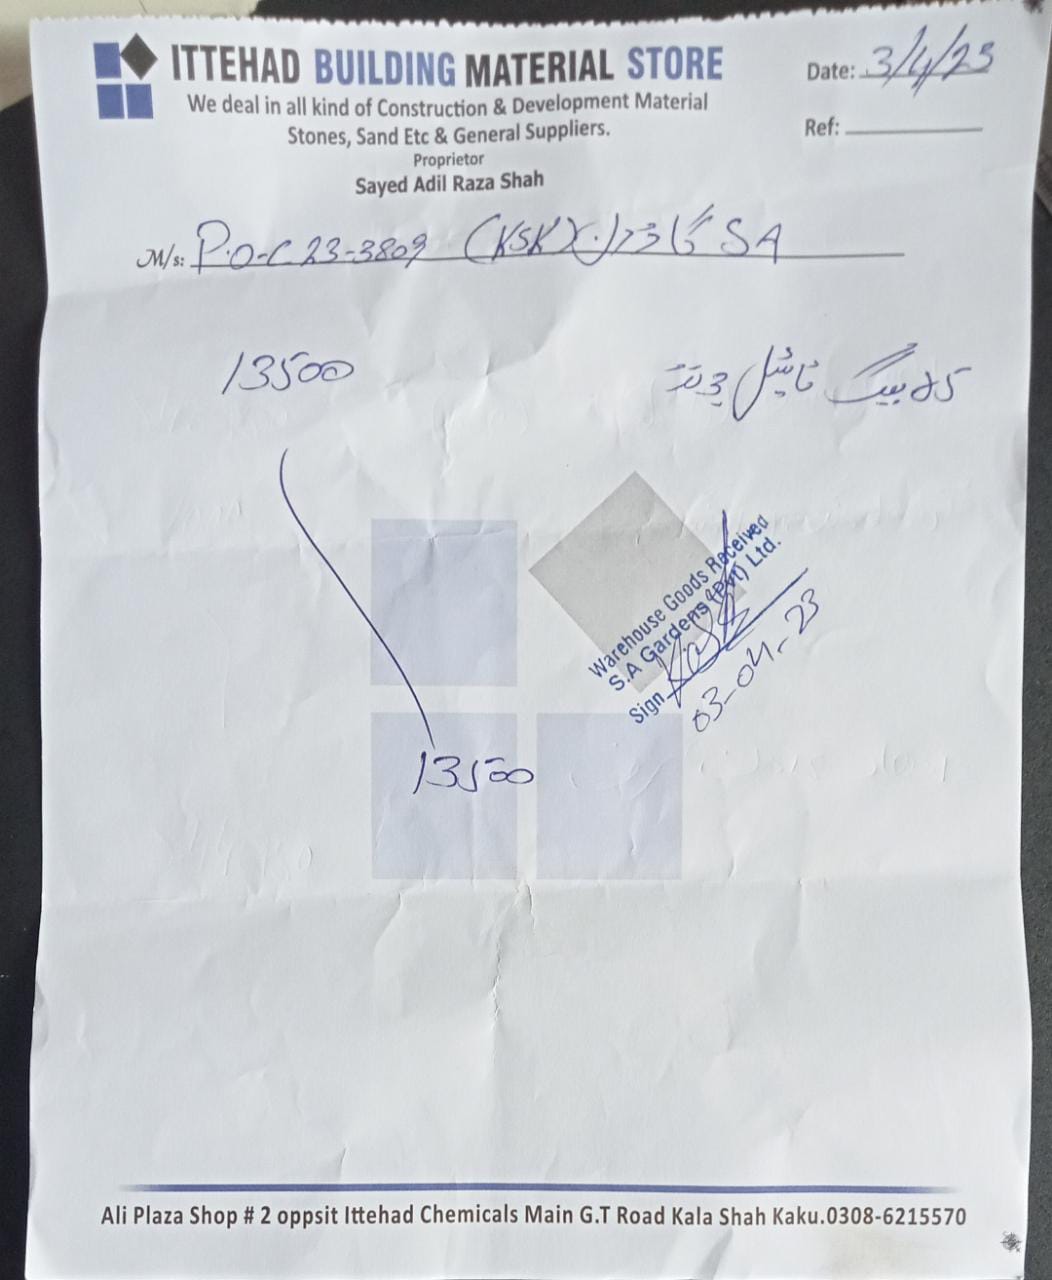 ITTEHAD BUILDING MATERIAL STORE
We deal in all kind of Construction & Development Material
Stones, Sand Etc & General Suppliers.
Proprietor
Sayed Adil Raza Shah
Date: 3/4/23
Ref:
M/s: P.O-C23-3809 (KSK) SA
13500
بیگ ٹائیل
Warehouse Goods Received
S.A Gardens (Pvt) Ltd.
Sign
03-04-23
13500
Ali Plaza Shop # 2 oppsit Ittehad Chemicals Main G.T Road Kala Shah Kaku.0308-6215570